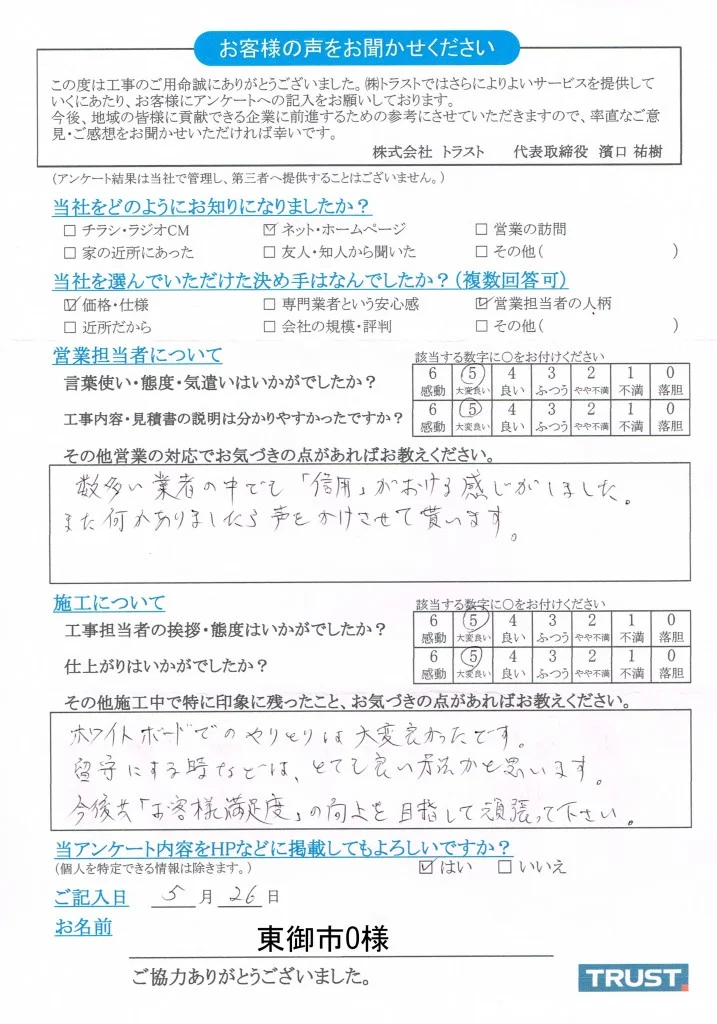 お客様の声をお聞かせください
この度は工事のご用命誠にありがとうございました。㈱トラストではさらによりよいサービスを提供して
いくにあたり、お客様にアンケートへの記入をお願いしております。
今後、地域の皆様に貢献できる企業に前進するための参考にさせていただきますので、率直なご意
見・ご感想をお聞かせいただければ幸いです。
株式会社 トラスト 代表取締役 濱口 祐樹
(アンケート結果は当社で管理し、第三者へ提供することはございません。)
当社をどのようにお知りになりましたか?
□ チラシ・ラジオCM ☑ ネット・ホームページ □ 営業の訪問
□ 家の近所にあった □ 友人・知人から聞いた □ その他( )
当社を選んでいただけた決め手はなんでしたか?(複数回答可)
☑ 価格・仕様 □ 専門業者という安心感 ☑ 営業担当者の人柄
□ 近所だから □ 会社の規模・評判 □ その他( )
営業担当者について 該当する数字に○をお付けください
言葉使い・態度・気遣いはいかがでしたか? 6 5 4 3 2 1 0
感動 大変良い 良い ふつう やや不満 不満 落胆
工事内容・見積書の説明は分かりやすかったですか? 6 5 4 3 2 1 0
感動 大変良い 良い ふつう やや不満 不満 落胆
その他営業の対応でお気づきの点があればお教えください。
数多い業者の中でも「信用」がおける感じがしました。
また何かありましたら声をかけさせて貰います。
施工について 該当する数字に○をお付けください
工事担当者の挨拶・態度はいかがでしたか? 6 5 4 3 2 1 0
感動 大変良い 良い ふつう やや不満 不満 落胆
仕上がりはいかがでしたか? 6 5 4 3 2 1 0
感動 大変良い 良い ふつう やや不満 不満 落胆
その他施工中で特に印象に残ったこと、お気づきの点があればお教えください。
ホワイトボードでのやりとりは大変良かったです。
留守にする時などは、とても良い方法かと思います。
今後共「お客様満足度」の向上を目指して頑張って下さい。
当アンケート内容をHPなどに掲載してもよろしいですか?
(個人を特定できる情報は除きます。) ☑ はい □ いいえ
ご記入日 5 月 26 日
お名前 東御市O様
ご協力ありがとうございました。
TRUST.